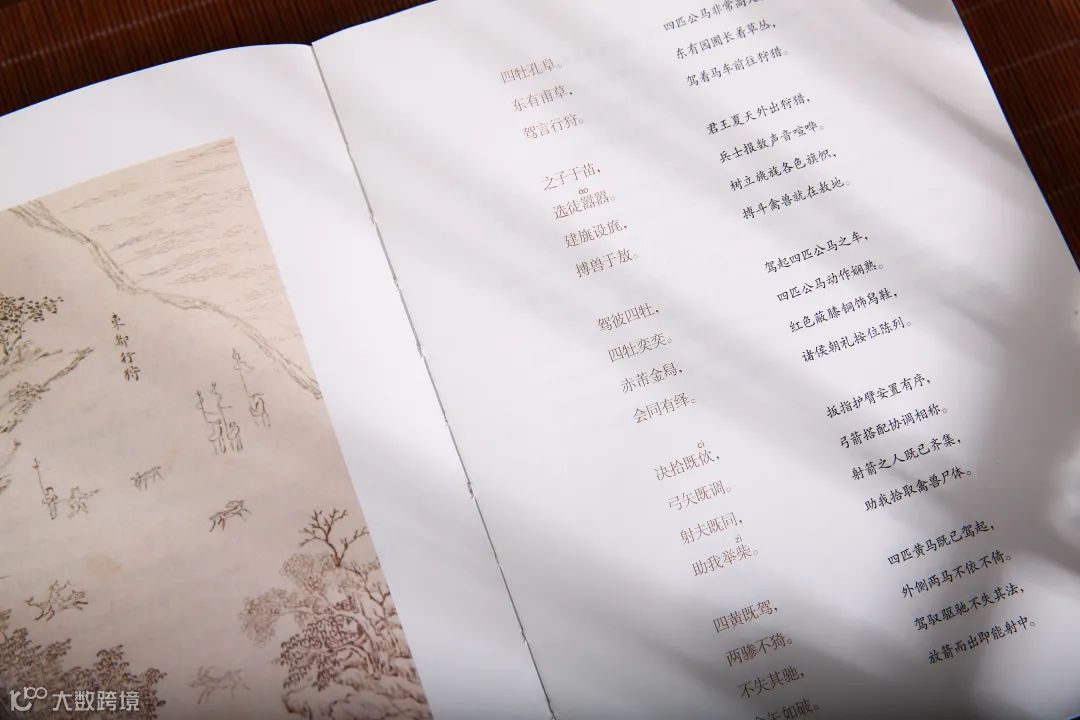 东都行狩
四牡孔阜。
东有甫草，
驾言行狩。
之子于苗，
áo
选徒嚣嚣。
建旐设旄，
搏兽于敖。
驾彼四牡，
四牡奕奕。
赤芾金舄，
会同有绎。
cì
决拾既佽，
弓矢既调。
射夫既同，
zì
助我举柴。
四黄既驾，
两骖不猗。
不失其驰，
舍矢如破。
四匹公马非常高大
东有园圃长着草丛，
驾着马车前往狩猎。
君王夏天外出狩猎，
兵士报数声音喧哗。
树立旐旄各色旗帜，
搏斗禽兽就在敖地。
驾起四匹公马之车，
四匹公马动作娴熟。
红色蔽膝铜饰舄鞋，
诸侯朝礼按位陈列。
扳指护臂安置有序，
弓箭搭配协调相称。
射箭之人既已齐集，
助我拾取禽兽尸体。
四匹黄马既已驾起，
外侧两马不依不倚。
驾驭驱驰不失其法，
放箭而出即能射中。
大数跨境